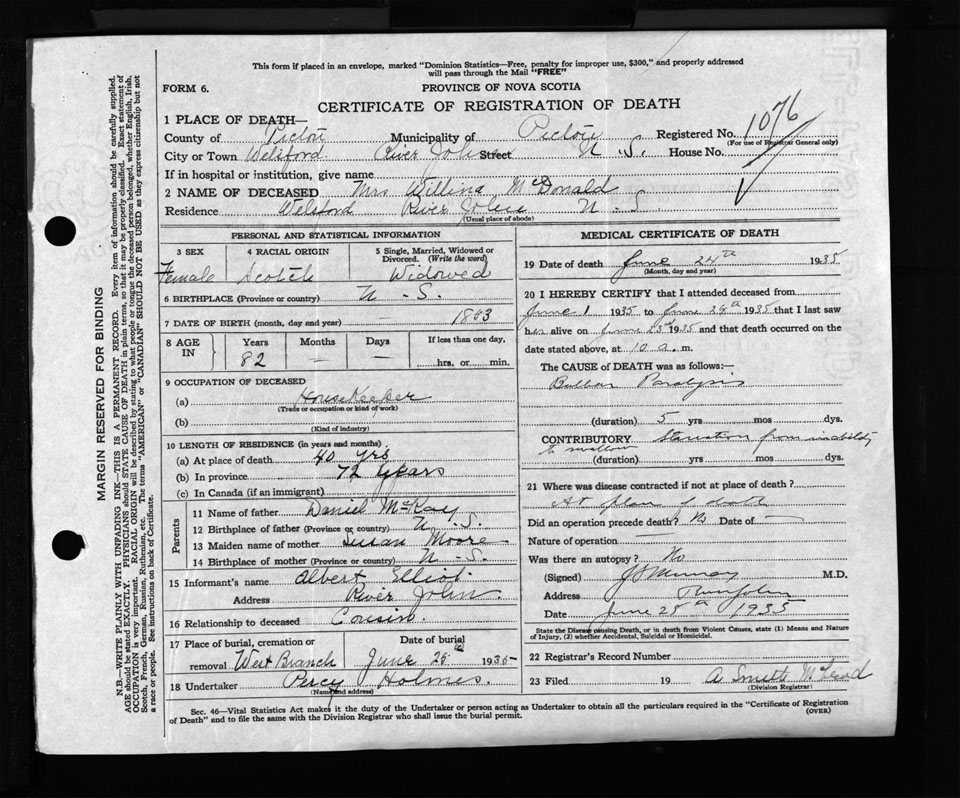 This form if placed in an envelope, marked "Dominion Statistics—Free, penalty for improper use, $300," and properly addressed
will pass through the Mail "FREE"
FORM 6.
PROVINCE OF NOVA SCOTIA
CERTIFICATE OF REGISTRATION OF DEATH
1 PLACE OF DEATH—
County of Pictou Municipality of Pictou N.S. Registered No. 1076
(For use of Registrar General only)
City or Town Welsford River John Street N.S. House No.
If in hospital or institution, give name
2 NAME OF DECEASED Mrs Willena McDonald
Residence Welsford River John N-S
(Usual place of abode)
PERSONAL AND STATISTICAL INFORMATION
3 SEX 4 RACIAL ORIGIN 5 Single, Married, Widowed or
Divorced. (Write the word)
Female Scotch Widowed
6 BIRTHPLACE (Province or country) N-S.
7 DATE OF BIRTH (month, day and year) 1883
8 AGE IN Years Months Days If less than one day,
82 — — hrs. or min.
9 OCCUPATION OF DECEASED
(a) HouseKeeper
(Trade or occupation or kind of work)
(b)
(Kind of industry)
10 LENGTH OF RESIDENCE (in years and months)
(a) At place of death 40 yrs
(b) In province 72 years
(c) In Canada (if an immigrant)
Parents
11 Name of father Daniel McKay
12 Birthplace of father (Province or country) N.S.
13 Maiden name of mother Susan Moore
14 Birthplace of mother (Province or country) N-S
15 Informant's name Albert Elliot
Address River John
16 Relationship to deceased Cousin.
17 Place of burial, cremation or Date of burial
removal West Branch June 25 1935
18 Undertaker Percy Holmes.
(Name and address)
MEDICAL CERTIFICATE OF DEATH
19 Date of death June 24th 1935
(Month, day and year)
20 I HEREBY CERTIFY that I attended deceased from
June 1 1935 to June 24th 1935 that I last saw
her alive on June 23rd 1935 and that death occurred on the
date stated above, at 10 a. m.
The CAUSE of DEATH was as follows:—
Bulbar Paralysis
(duration) 5 yrs mos dys.
CONTRIBUTORY Starvation from inability
to swallow
(duration) yrs. mos. dys.
21 Where was disease contracted if not at place of death?
At place of death
Did an operation precede death? No Date of —
Nature of operation —
Was there an autopsy? No
(Signed) Murray M.D.
Address River John
Date June 25th 1935
State the Disease causing Death, or in death from Violent Causes, state (1) Means and Nature
of Injury, (2) whether Accidental, Suicidal or Homicidal.
22 Registrar's Record Number
23 Filed 19 A Smith McLeod
(Division Registrar)
Sec. 46—Vital Statistics Act makes it the duty of the Undertaker or person acting as Undertaker to obtain all the particulars required in the "Certificate of Registration
of Death" and to file the same with the Division Registrar who shall issue the burial permit.
(OVER)
MARGIN RESERVED FOR BINDING
N.B.—WRITE PLAINLY WITH UNFADING INK—THIS IS A PERMANENT RECORD. Every item of information should be carefully supplied.
AGE should be stated EXACTLY. PHYSICIANS should STATE CAUSE OF DEATH in plain terms, so that it may be properly classified. Exact statement of
OCCUPATION is very important. RACIAL ORIGIN will be described by stating to what people or tongue the deceased person belonged, whether English, Irish,
Scotch, French, German, Russian, Ruthenian, etc. The terms "AMERICAN" or "CANADIAN" SHOULD NOT BE USED as they express citizenship but not
a race or people. See instructions on back of Certificate.